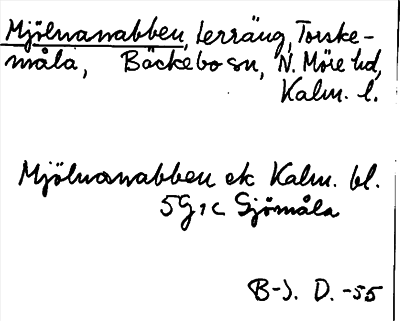 Mjölnanabben, Lerräng, Torske-
måla, Bäckebo sn, N. Möre hd,
Kalm. l.
Mjölnanabben ek Kalm. bl.
5G1c Gjömåla
B-J. D. -55